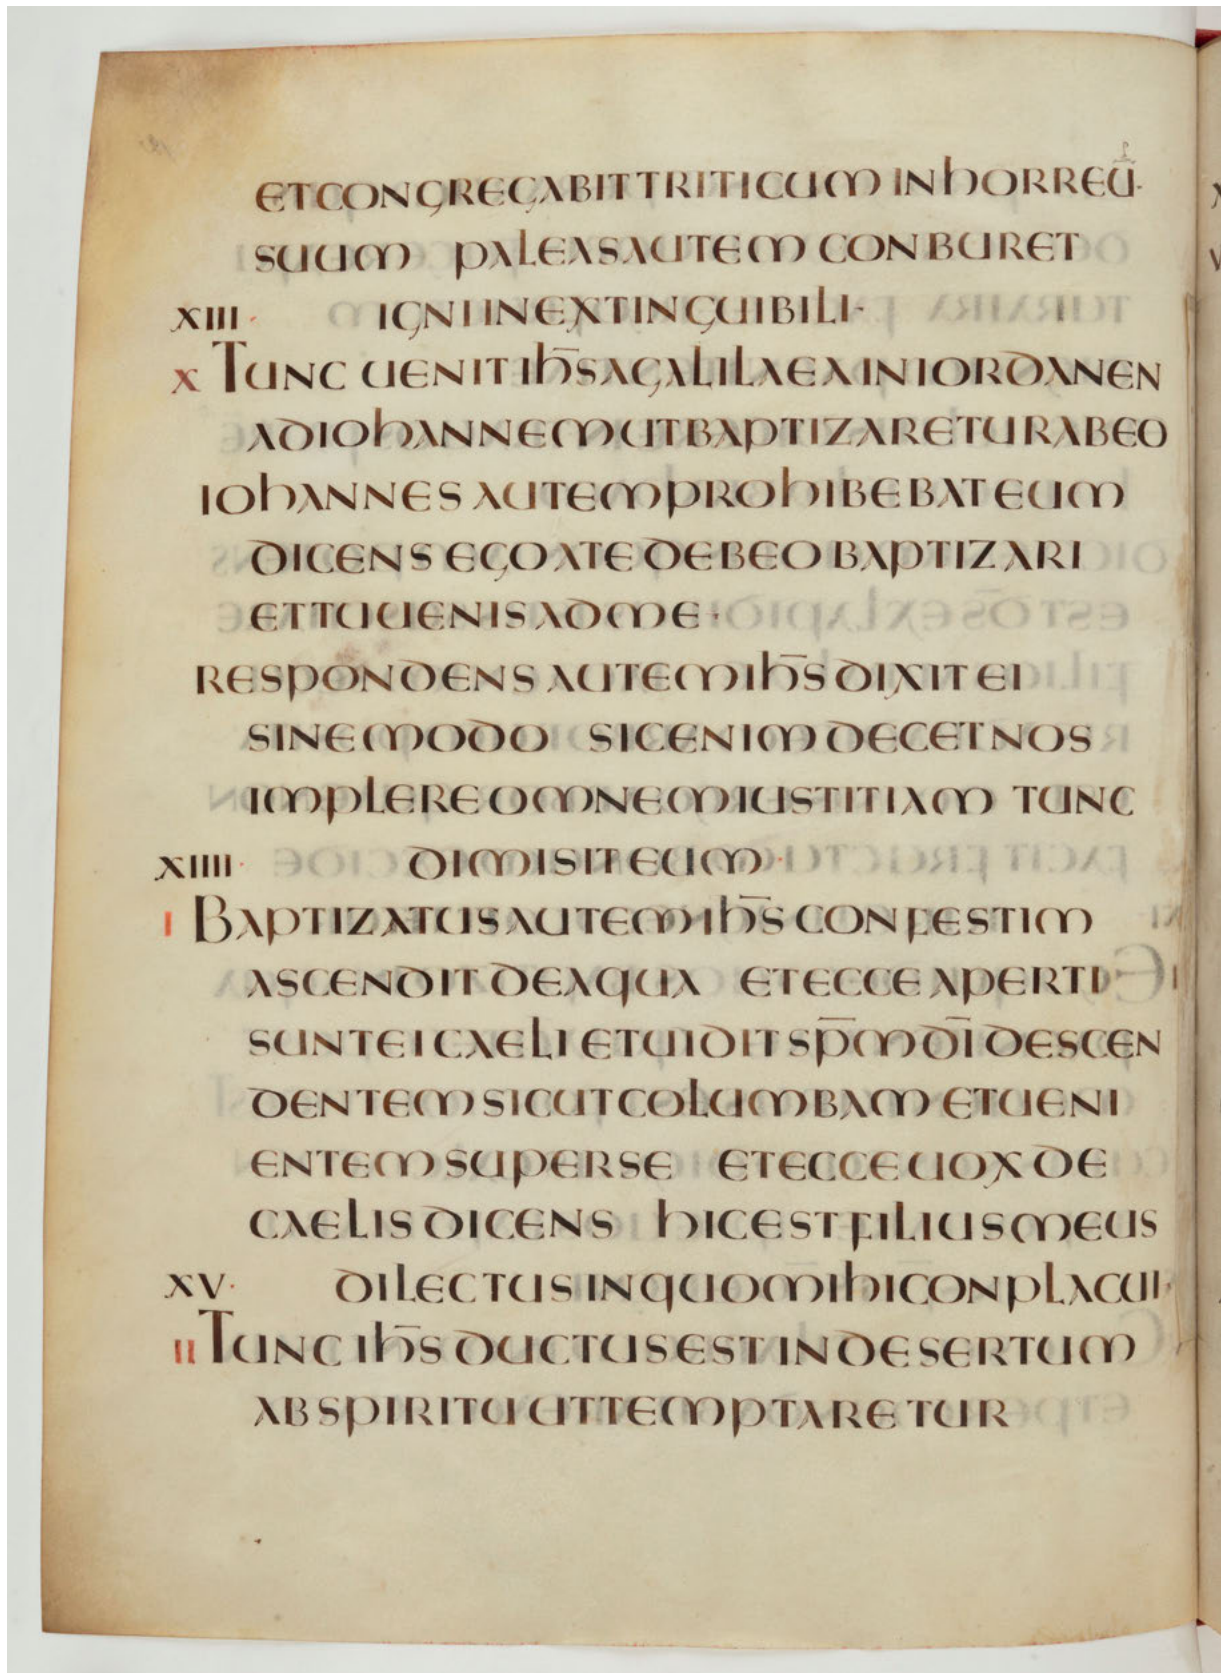 ETCONGREGABITTRITICUM INHORREŪ·
SUUM PALEASAUTEM CONBURET
XIII· IGNI INEXTINGUIBILI·
X TUNC UENIT IH̄S AGALILAEA INIORDANEN
ADIOHANNEM UTBAPTIZARETUR ABEO
IOHANNES AUTEM PROHIBEBAT EUM
DICENS EGO ATE DEBEO BAPTIZARI
ETTU UENIS ADME·
RESPONDENS AUTEM IH̄S DIXIT EI
SINEMODO SICENIM DECET NOS
IMPLERE OMNEM IUSTITIAM TUNC
XIIII· DIMISIT EUM·
I BAPTIZATUS AUTEM IH̄S CONFESTIM
ASCENDIT DEAQUA ETECCE APERTI
SUNT EI CAELI ETUIDIT SP̄M D̄I DESCEN
DENTEM SICUT COLUMBAM ETUENI
ENTEM SUPERSE ETECCE UOX DE
CAELIS DICENS HICEST FILIUS MEUS
XV· DILECTUS INQUO MIHI CONPLACUI·
II TUNC IH̄S DUCTUS EST INDESERTUM
AB SPIRITU UT TEMPTARETUR